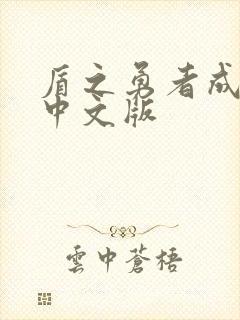 盾之勇者成
中文版
雲中蒼梧